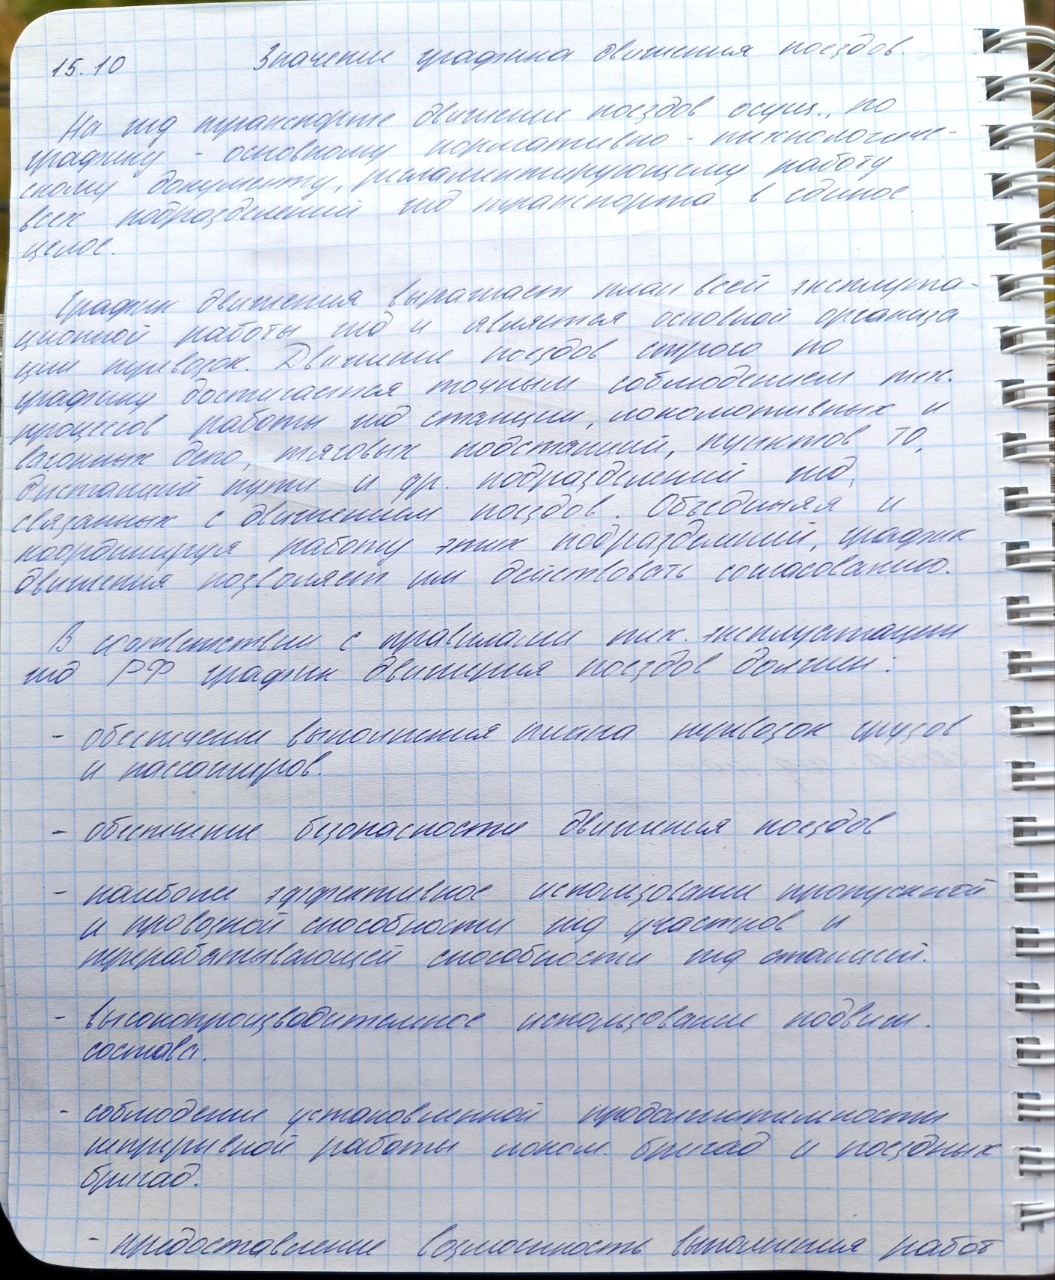 15.10 Значение графика движения поездов
На жд транспорте движение поездов осущ. по
графику - основному нормативно - технологиче-
скому документу, регламентирующему работу
всех подразделений жд транспорта в единое
целое.
График движения выражает план всей эксплуата-
ционной работы жд и является основной организа
ции перевозок. Движение поездов строго по
графику достигается точным соблюдением тех.
процессов работы жд станции, локомотивных и
вагонных депо, тяговых подстанций, пунктов ТО,
дистанций пути и др. подразделений жд,
связанных с движением поездов. Объединяя и
координируя работу этих подразделений, график
движения позволяет им действовать согласованно.
В соответствии с правилами тех. эксплуатации
жд РФ график движения поездов должен:
- обеспечение выполнения плана перевозок грузов
и пассажиров.
- обеспечение безопасности движения поездов
- наиболее эффективное использование пропускной
и провозной способности жд участков и
перерабатывающей способности жд станций.
- высокопроизводительное использование подвиж.
состава.
- соблюдение установленной продолжительности
непрерывной работы локом. бригад и поездных
бригад.
- предоставление возможность выполнения работ